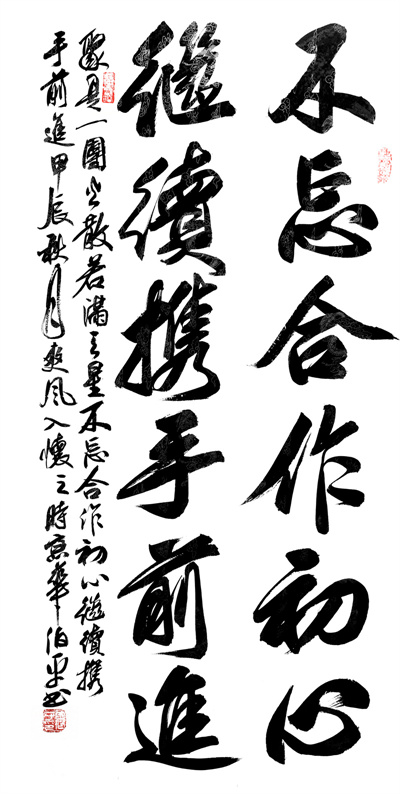 不忘合作初心
繼續攜手前進
聚是一團火散若滿天星不忘合作初心繼續攜
手前進甲辰秋月爽風入懷之時京華伯平書